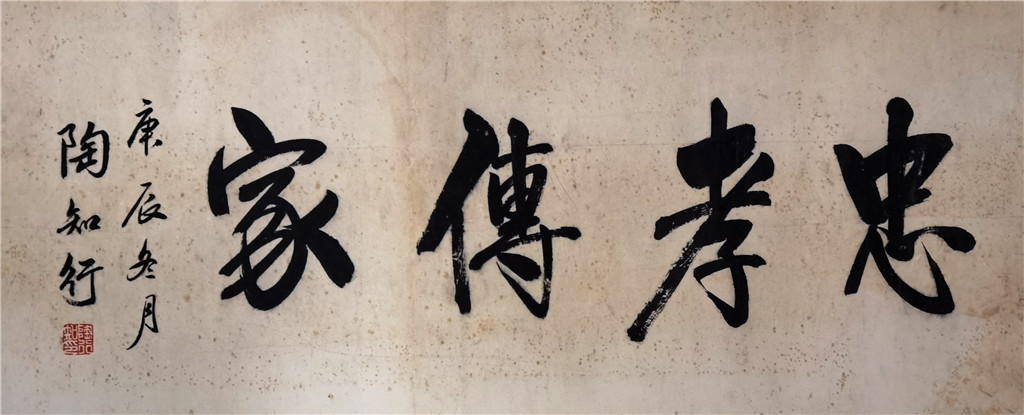 忠孝傳家
庚辰冬月
陶知行